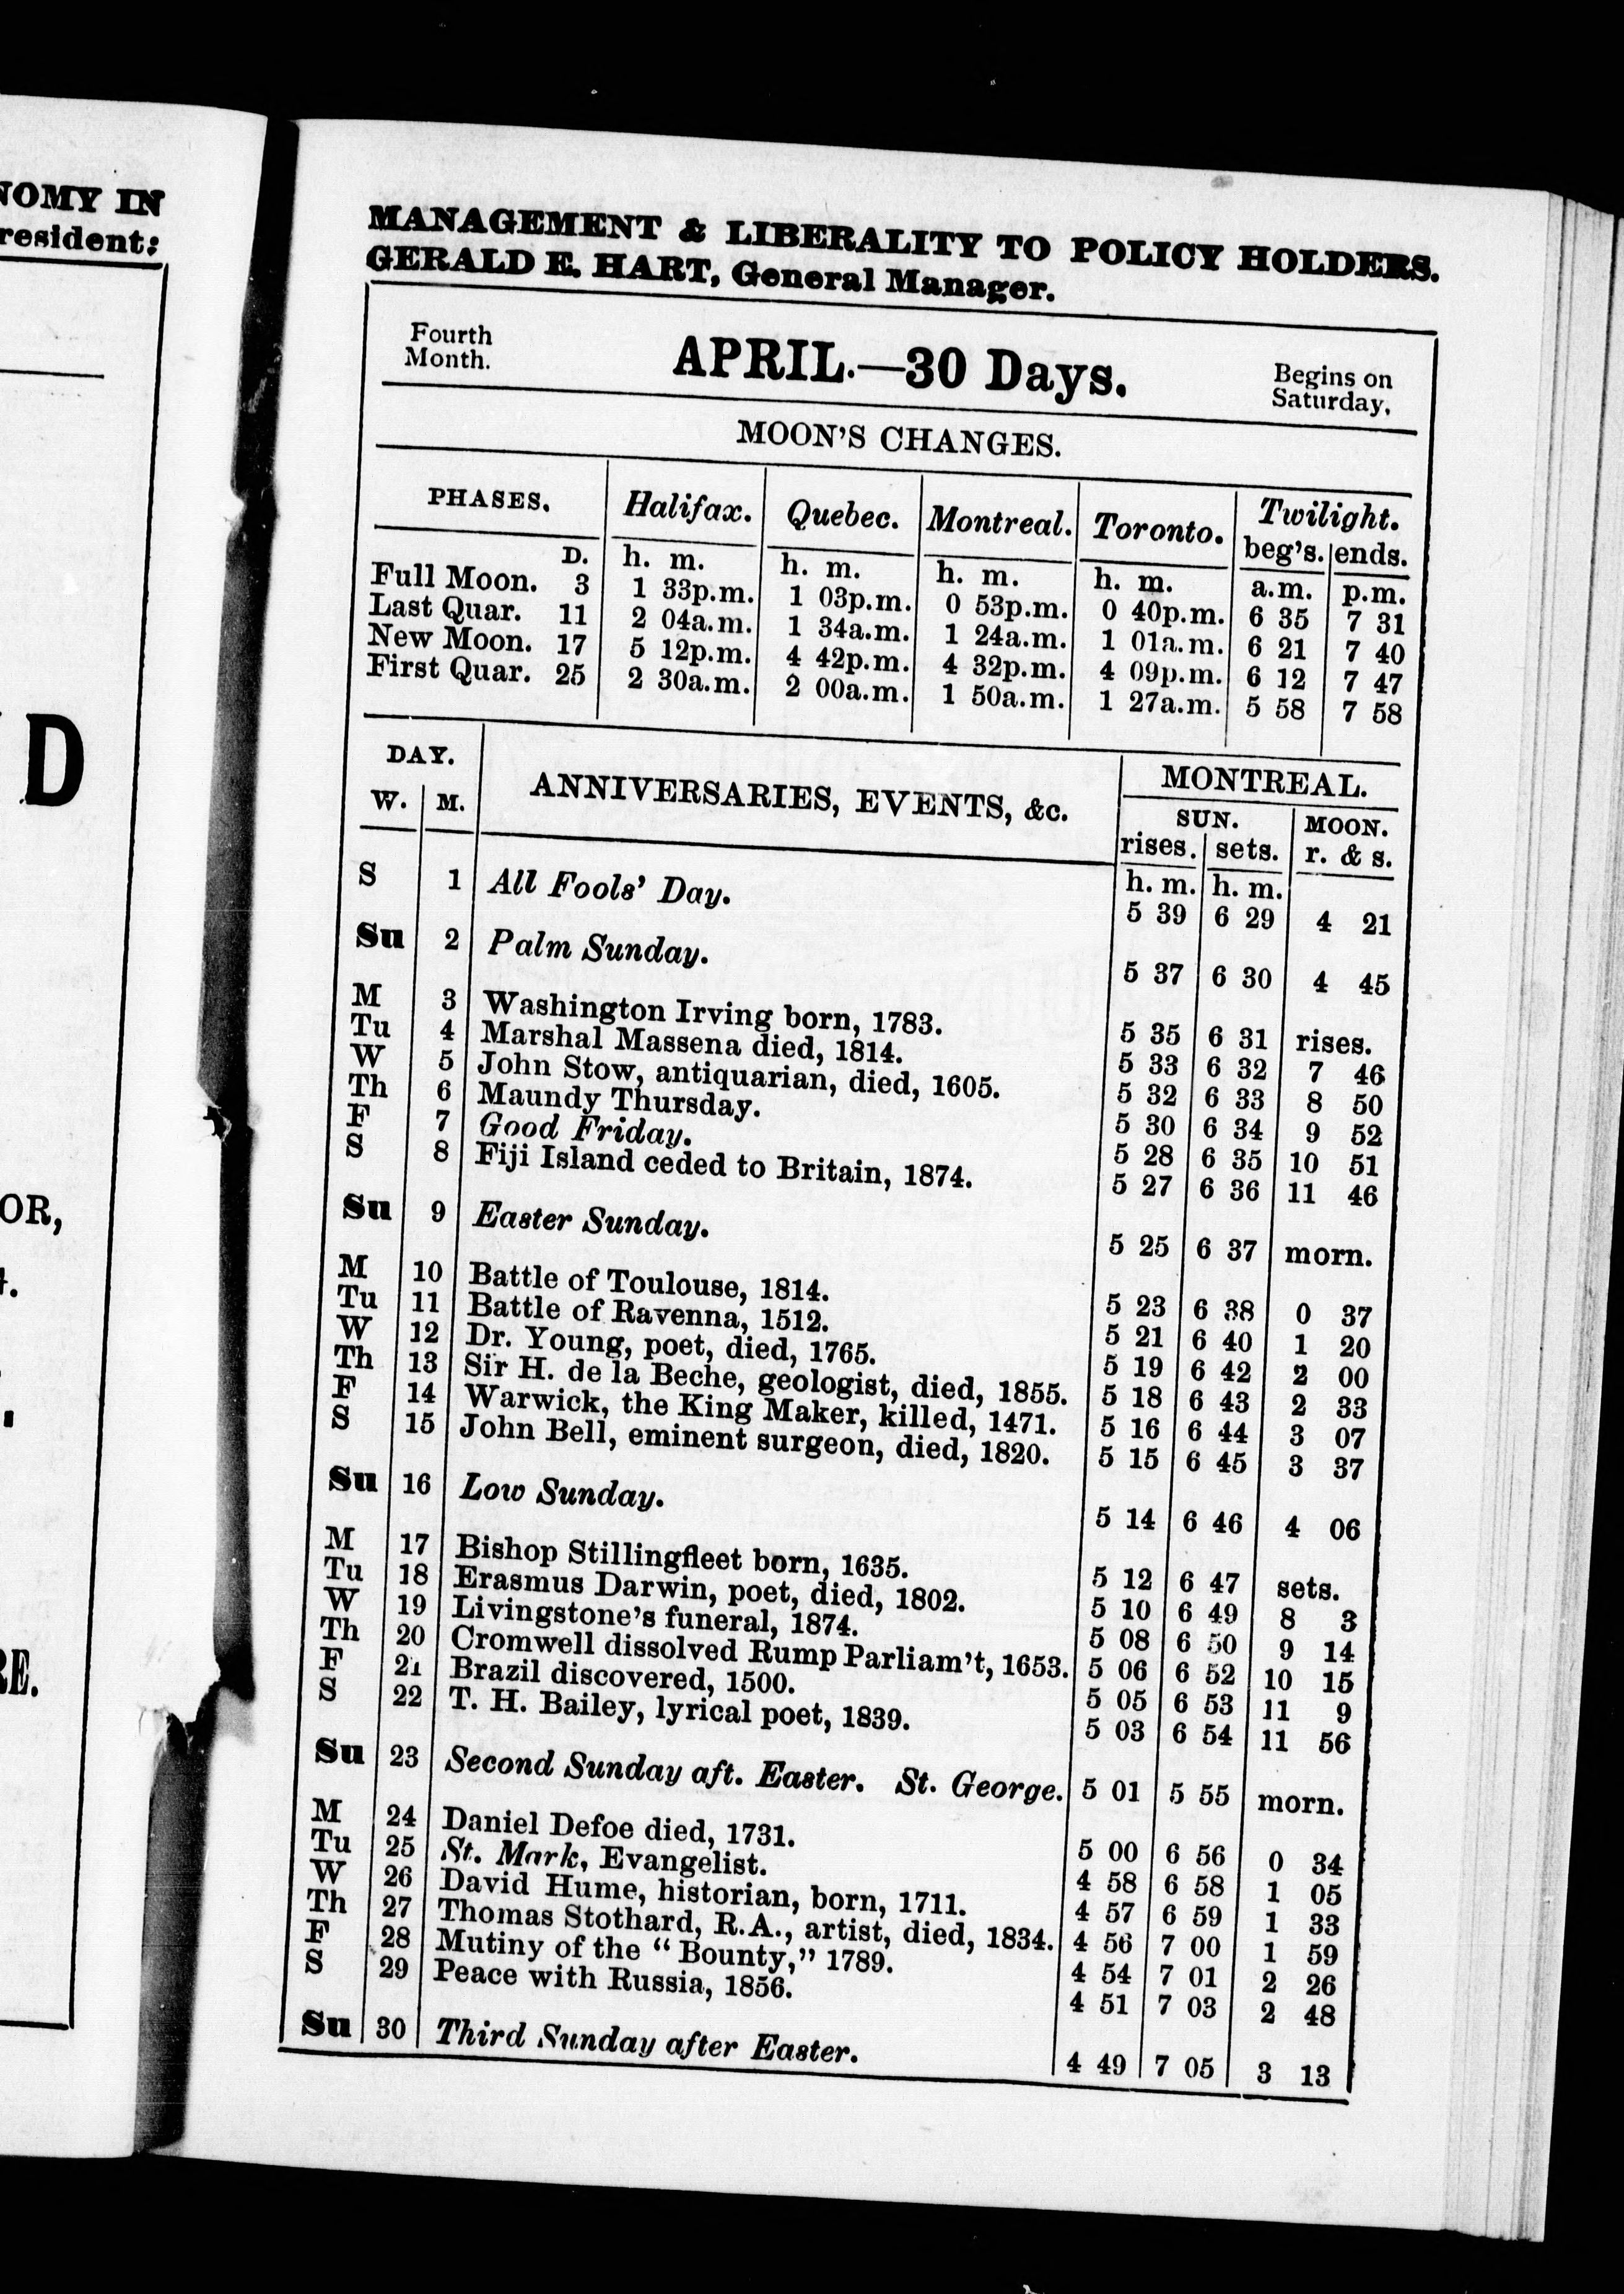 NOMY IN
resident;
D
OR,
RE.
MANAGEMENT & LIBERALITY TO POLICY HOLDERS.
GERALD E. HART, General Manager.
Fourth Month. APRIL.—30 Days. Begins on Saturday,
MOON'S CHANGES.
PHASES. Halifax. Quebec. Montreal. Toronto. Twilight.
beg's. ends.
D. h. m. h. m. h. m. h. m. a.m. p.m.
Full Moon. 3 1 33p.m. 1 03p.m. 0 53p.m. 0 40p.m. 6 35 7 31
Last Quar. 11 2 04a.m. 1 34a.m. 1 24a.m. 1 01a.m. 6 21 7 40
New Moon. 17 5 12p.m. 4 42p.m. 4 32p.m. 4 09p.m. 6 12 7 47
First Quar. 25 2 30a.m. 2 00a.m. 1 50a.m. 1 27a.m. 5 58 7 58
DAY. ANNIVERSARIES, EVENTS, &c. MONTREAL.
W. M. SUN. MOON.
rises. sets. r. & s.
h. m. h. m.
S 1 All Fools' Day. 5 39 6 29 4 21
Su 2 Palm Sunday. 5 37 6 30 4 45
M 3 Washington Irving born, 1783. 5 35 6 31 rises.
Tu 4 Marshal Massena died, 1814. 5 33 6 32 7 46
W 5 John Stow, antiquarian, died, 1605. 5 32 6 33 8 50
Th 6 Maundy Thursday. 5 30 6 34 9 52
F 7 Good Friday. 5 28 6 35 10 51
S 8 Fiji Island ceded to Britain, 1874. 5 27 6 36 11 46
Su 9 Easter Sunday. 5 25 6 37 morn.
M 10 Battle of Toulouse, 1814. 5 23 6 38 0 37
Tu 11 Battle of Ravenna, 1512. 5 21 6 40 1 20
W 12 Dr. Young, poet, died, 1765. 5 19 6 42 2 00
Th 13 Sir H. de la Beche, geologist, died, 1855. 5 18 6 43 2 33
F 14 Warwick, the King Maker, killed, 1471. 5 16 6 44 3 07
S 15 John Bell, eminent surgeon, died, 1820. 5 15 6 45 3 37
Su 16 Low Sunday. 5 14 6 46 4 06
M 17 Bishop Stillingfleet born, 1635. 5 12 6 47 sets.
Tu 18 Erasmus Darwin, poet, died, 1802. 5 10 6 49 8 3
W 19 Livingstone's funeral, 1874. 5 08 6 50 9 14
Th 20 Cromwell dissolved Rump Parliam't, 1653. 5 06 6 52 10 15
F 21 Brazil discovered, 1500. 5 05 6 53 11 9
S 22 T. H. Bailey, lyrical poet, 1839. 5 03 6 54 11 56
Su 23 Second Sunday aft. Easter. St. George. 5 01 5 55 morn.
M 24 Daniel Defoe died, 1731. 5 00 6 56 0 34
Tu 25 St. Mark, Evangelist. 4 58 6 58 1 05
W 26 David Hume, historian, born, 1711. 4 57 6 59 1 33
Th 27 Thomas Stothard, R.A., artist, died, 1834. 4 56 7 00 1 59
F 28 Mutiny of the "Bounty," 1789. 4 54 7 01 2 26
S 29 Peace with Russia, 1856. 4 51 7 03 2 48
Su 30 Third Sunday after Easter. 4 49 7 05 3 13